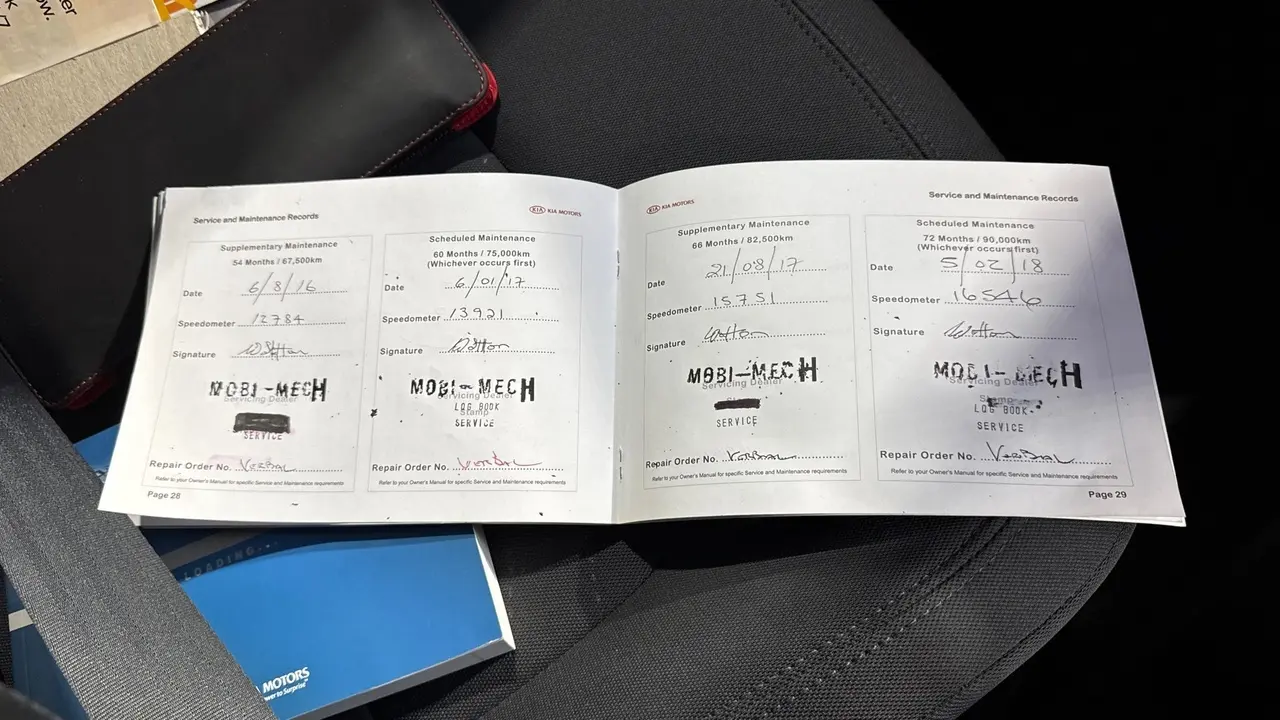 ow.
Service and Maintenance Records
KIA KIA MOTORS
Supplementary Maintenance
54 Months / 67,500km
Date 6/8/16
Speedometer 12784
Signature
MOBI-MECH
Servicing Dealer
SERVICE
Repair Order No. VERBAL
Refer to your Owner's Manual for specific Service and Maintenance requirements
Page 28
Scheduled Maintenance
60 Months / 75,000km
(Whichever occurs first)
Date 6/01/17
Speedometer 13921
Signature
MOBI-MECH
Servicing Dealer
LOG BOOK
Stamp
SERVICE
Repair Order No. VERBAL
Refer to your Owner's Manual for specific Service and Maintenance requirements
KIA KIA MOTORS
Service and Maintenance Records
Supplementary Maintenance
66 Months / 82,500km
Date 21/08/17
Speedometer 15751
Signature
MOBI-MECH
Servicing Dealer
SERVICE
Repair Order No. VERBAL
Refer to your Owner's Manual for specific Service and Maintenance requirements
Scheduled Maintenance
72 Months / 90,000km
(Whichever occurs first)
Date 5/02/18
Speedometer 16546
Signature
MOBI-MECH
Servicing Dealer
LOG BOOK
SERVICE
Repair Order No. VERBAL
Refer to your Owner's Manual for specific Service and Maintenance requirements
Page 29
LOADING...
MOTORS